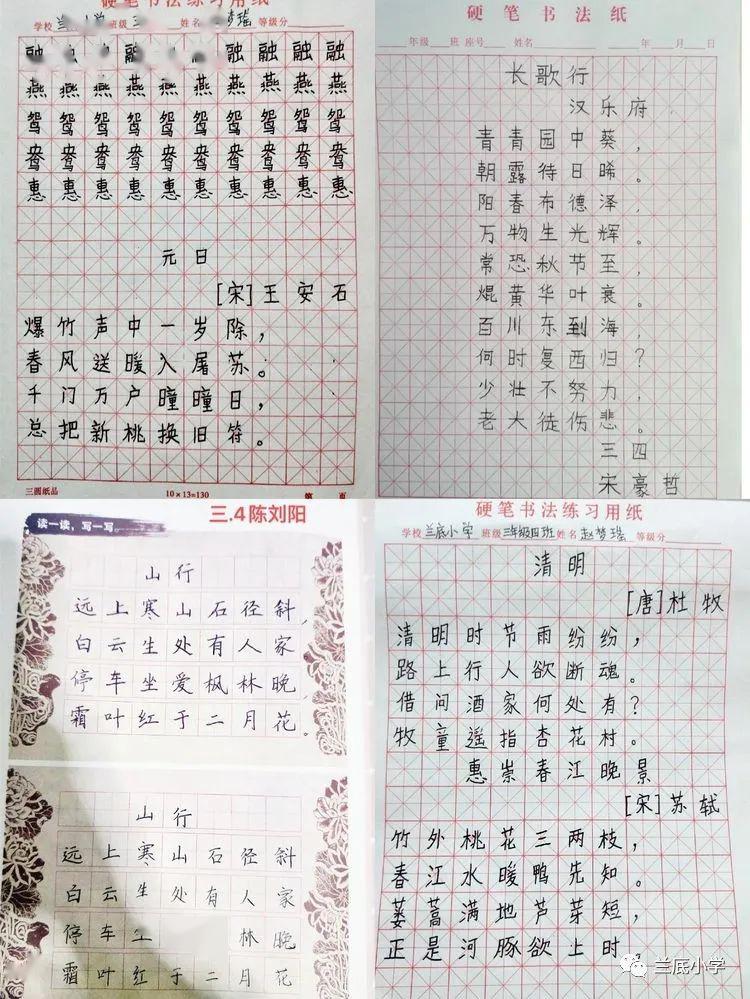 硬笔书法练习用纸
学校 兰 小学 班级 三 姓名 梦瑶 等级分
融 融 融 融 融 融
燕 燕 燕 燕 燕 燕 燕 燕 燕 燕
鸳 鸳 鸳 鸳 鸳 鸳 鸳 鸳 鸳 鸳
鸯 鸯 鸯 鸯 鸯 鸯 鸯 鸯 鸯 鸯
惠 惠 惠 惠 惠 惠 惠 惠 惠 惠
元日
[宋]王安石
爆竹声中一岁除，
春风送暖入屠苏。
千门万户曈曈日，
总把新桃换旧符。
三圆纸品 10×13=130 第 页
硬笔书法纸
年级 班 座号 姓名 年 月 日
长歌行
汉乐府
青青园中葵，
朝露待日晞。
阳春布德泽，
万物生光辉。
常恐秋节至，
焜黄华叶衰。
百川东到海，
何时复西归？
少壮不努力
老大徒伤悲。
三四
宋豪哲
三.4陈刘阳
读一读，写一写。
山行
远上寒山石径斜，
白云生处有人家
停车坐爱枫林晚，
霜叶红于二月花。
山行
远上寒山石径斜
白云生处有人家
停车 林晚
霜叶红于二月花
硬笔书法练习用纸
学校 兰底小学 班级 三年级四班 姓名 赵梦瑶 等级分
清明
[唐]杜牧
清明时节雨纷纷，
路上行人欲断魂。
借问酒家何处有？
牧童遥指杏花村。
惠崇春江晚景
[宋]苏轼
竹外桃花三两枝，
春江水暖鸭先知。
蒌蒿满地芦芽短，
正是河豚欲上时
兰底小学